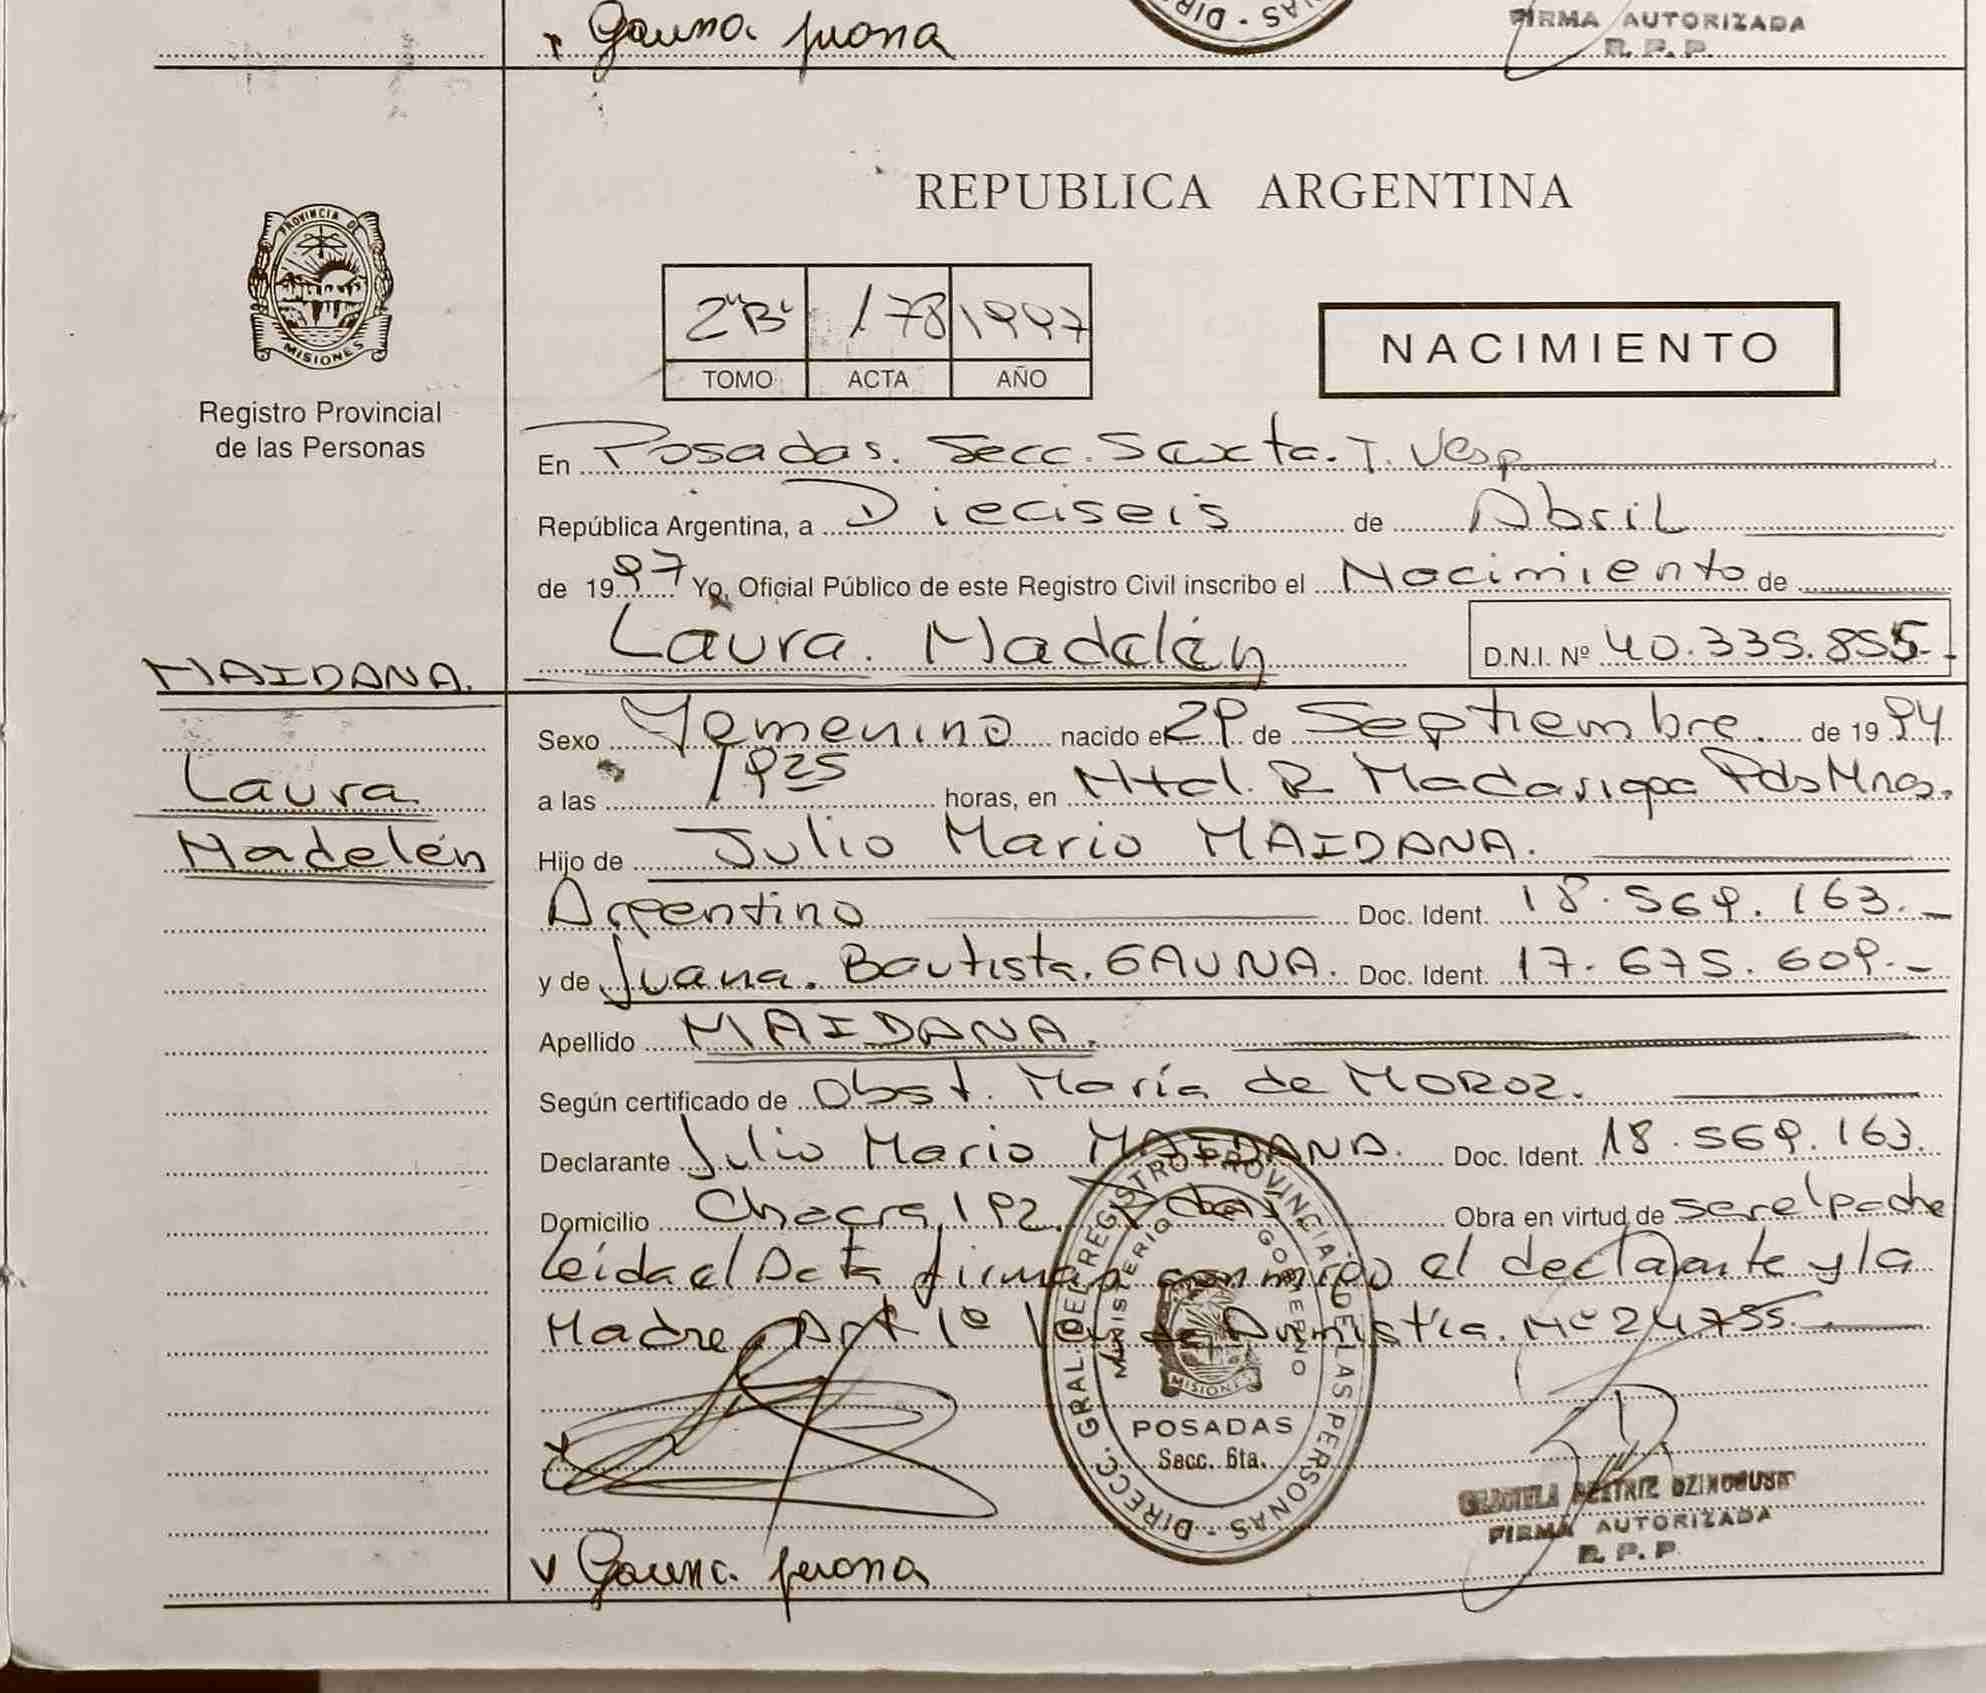 Gauna Juana
FIRMA AUTORIZADA
R. P. P.
PROVINCIA DE
MISIONES
Registro Provincial
de las Personas
REPUBLICA ARGENTINA
2"B" 178 1997
TOMO ACTA AÑO
NACIMIENTO
En Posadas. Secc. Sexta. T. Vesp.
República Argentina, a Dieciseis de Abril
de 1997 Yo, Oficial Público de este Registro Civil inscribo el Nacimiento de
Laura. Madelén D.N.I. Nº 40.335.855.-
MAIDANA.
Laura
Madelén
Sexo Femenino nacido el 29 de Septiembre. de 1994
a las 1925 horas, en Htal. R Madariaga Pdas Mnes.
Hijo de Julio Mario MAIDANA.
Argentino Doc. Ident. 18.569.163.-
y de Juana. Bautista. GAUNA. Doc. Ident. 17.675.609.-
Apellido MAIDANA.
Según certificado de Obst. María de MOROZ.
Declarante Julio Mario MAIDANA. Doc. Ident. 18.569.163.
Domicilio Chacra 192. Pdas. Obra en virtud de ser el padre
Leída el Acta firman conmigo el declarante y la
Madre. Art 1º Ley de Amnistía. Nº 24755.
DIRECC. GRAL. DEL REGISTRO PROVINCIAL DE LAS PERSONAS
MINISTERIO GOBIERNO
MISIONES
POSADAS
Secc. 6ta.
GRACIELA BEATRIZ
FIRMA AUTORIZADA
R. P. P.
Gauna Juana